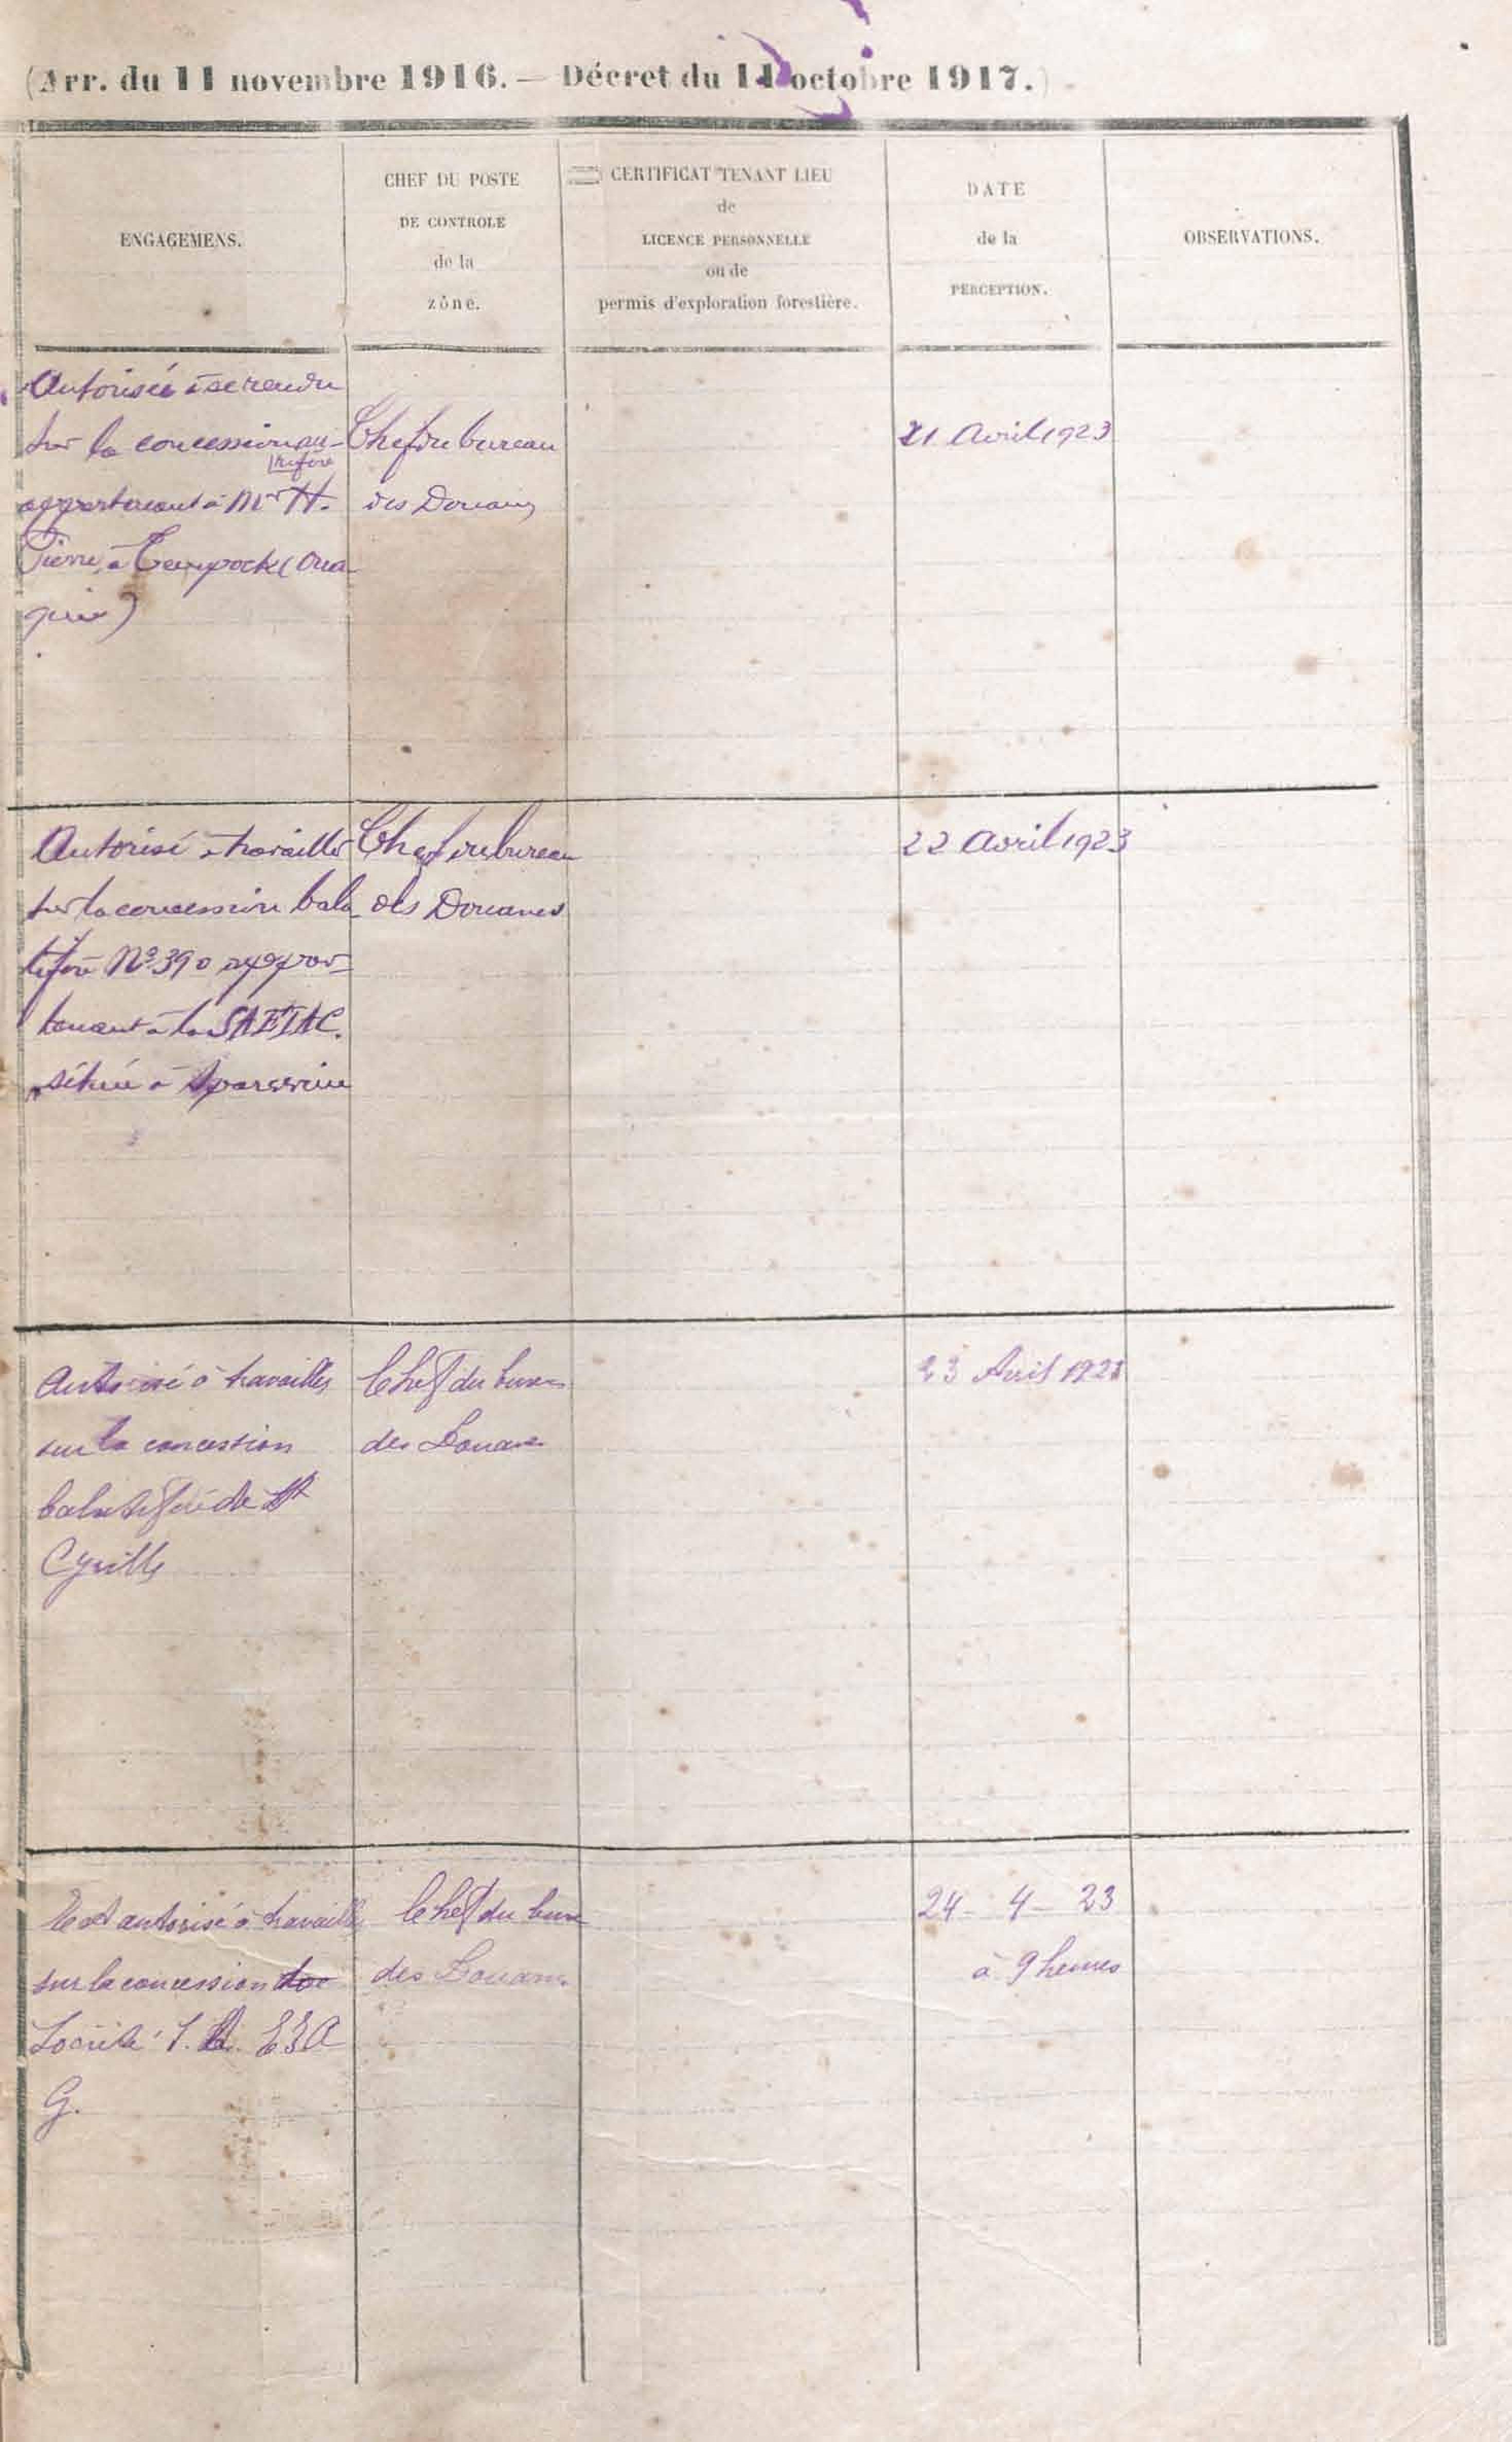 (Arr. du 11 novembre 1916. — Décret du 11 octobre 1917.)
ENGAGEMENS.
CHEF DU POSTE
DE CONTROLE
de la
zône.
CERTIFICAT TENANT LIEU
de
LICENCE PERSONNELLE
ou de
permis d'exploration forestière.
DATE
de la
PERCEPTION.
OBSERVATIONS.
Autorisé à se rendre
sur la concession au-
rifère
appartenant à Mr H.
Pierre, à (Oua
qui)
Chef du bureau
des Douanes
21 Avril 1923
Autorisé à travailler
sur la concession bala
tifère No 390 appar-
tenant à la SAEIAC.
située à
Chef du bureau
des Douanes
22 Avril 1923
Autorisé à travailler
sur la concession
balatifère de St
Cyrille
Le chef du bureau
des Douanes
23 Avril 1923
Est autorisé à travailler
sur la concession
Société S. A. E I A
G.
Le chef du bureau
des Douanes
24 - 4 - 23
à 9 heures